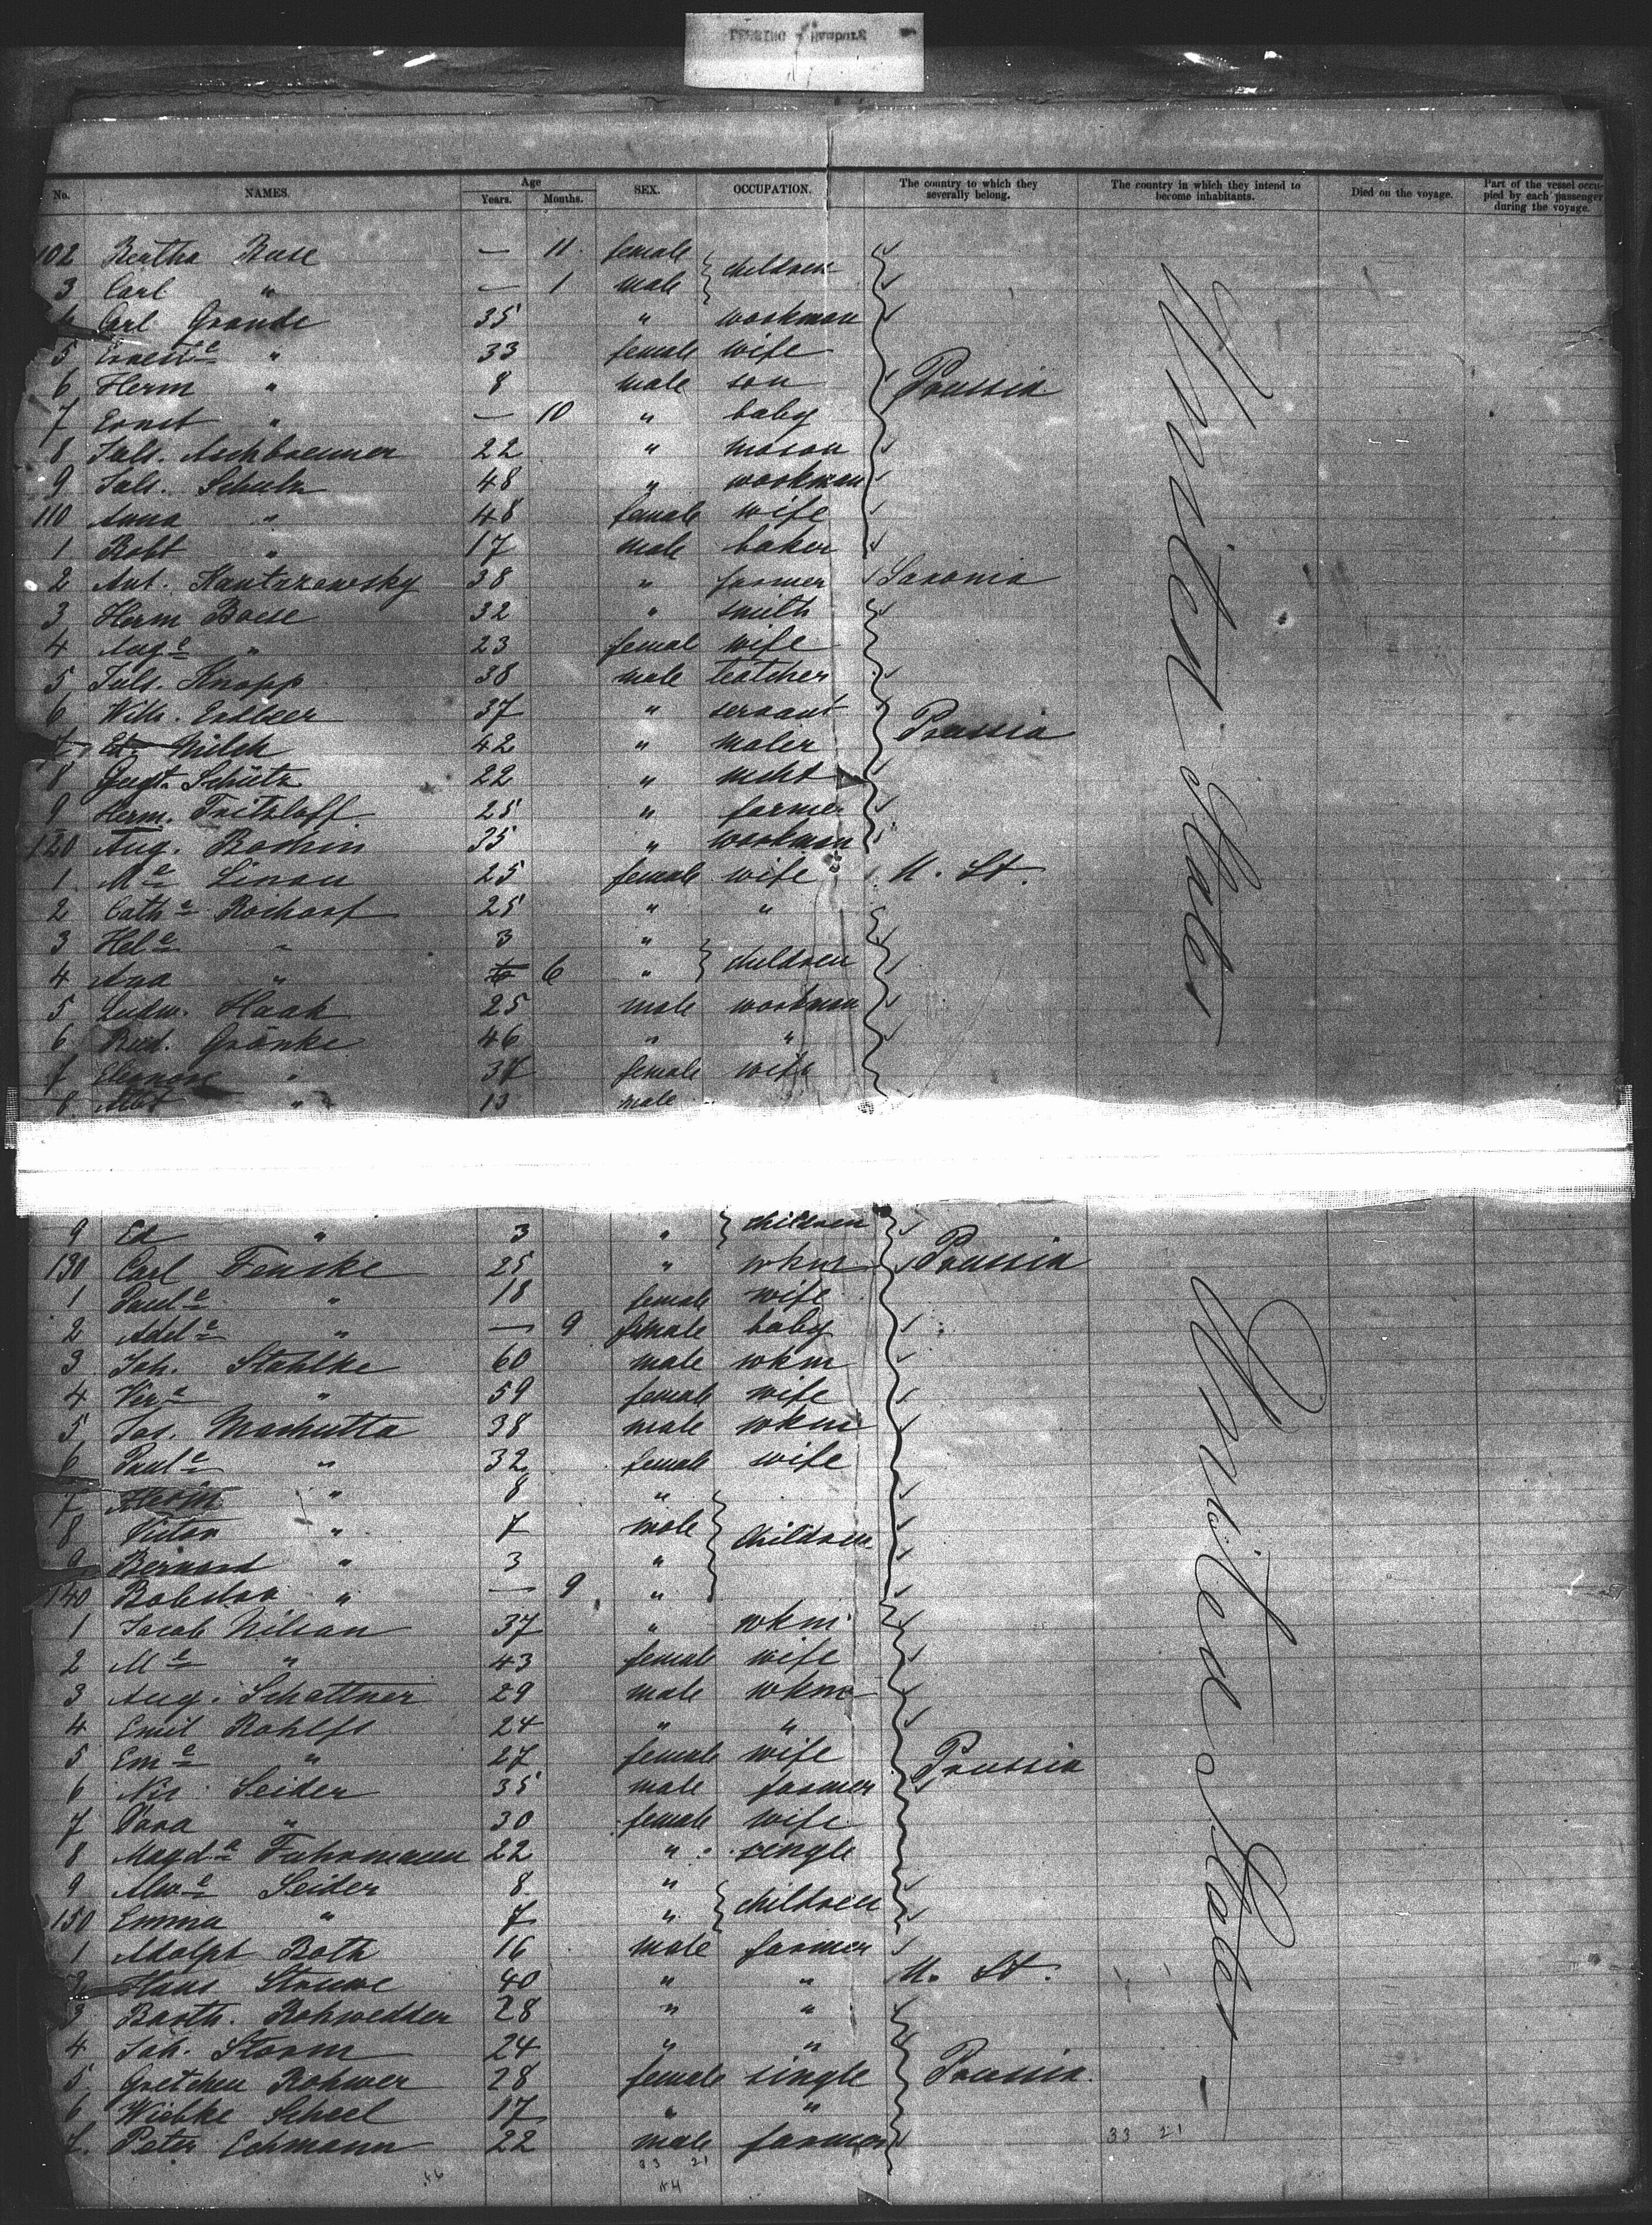 No. NAMES. Age Years. Months. SEX. OCCUPATION. The country to which they severally belong. The country in which they intend to become inhabitants. Died on the voyage. Part of the vessel occupied by each passenger during the voyage.
102 Bertha Buse — 11 female children
3 Carl " — 1 male
4 Carl Grande 35 " workman
5 Erneste " 33 female wife
6 Herm " 8 male son Prussia
7 Ernst " — 10 " baby
8 Juls. Aschbrenner 22 " mason
9 Juls. Schulz 48 " workman
110 Anna " 48 female wife
1 Robt " 17 male baker
2 Ant. Kantrzewsky 38 " farmer Saxonia
3 Herm Boese 32 " smith
4 Auge " 23 femal wife
5 Juls. Knopp 38 male teatcher
6 Wilh. 37 " servant
7 Ed. Milch 42 " maler Prussia
8 Gust. Schütz 22 " mcht
9 Herm. Fritzloff 25 " farmer
120 Aug. Bochin 35 " workman
1 Me Linau 25 female wife U. St.
2 Cathe 25 " "
3 Hele " 3 " children
4 Ana " 6 "
5 Ludw. Haak 25 male workman
6 Grönke 46 " "
7 Eleonore " 37 female wife
8 Albt " 13 male
United States
9 Ed " 3 " children
130 Carl Fenske 25 " wkm Prussia
1 Paule " 18 female wife
2 Adele " — 9 female baby
3 Joh. Stahlke 60 male wkm
4 Vere " 59 female wife
5 Jos. Machutta 38 male wkm
6 Paule " 32 female wife
7 " 8 " children
8 Victor " 7 male
9 Bernard " 3 "
140 " — 9 "
1 Jacob Nilson 37 " wkm
2 Me " 43 female wife
3 Aug. Schattner 29 male wkm
4 Emil Rohlfs 24 " "
5 Eme " 27 female wife Prussia
6 Nic. Seider 35 male farmer
7 " 30 female wife
8 Magda Fuhrmann 22 " single
9 Alwe Seider 8 " children
150 Emma " 7 "
1 Adolph Both 16 male farmer
2 Hans Struve 40 " " U. St.
3 Barth. Rohwedder 28 " "
4 Joh. Storm 24 " "
5 Gretchen Rohwer 28 female single Prussia
6 Wiebke Scheel 17 " "
7 Peter Echmann 22 male farmer
United States
33 21